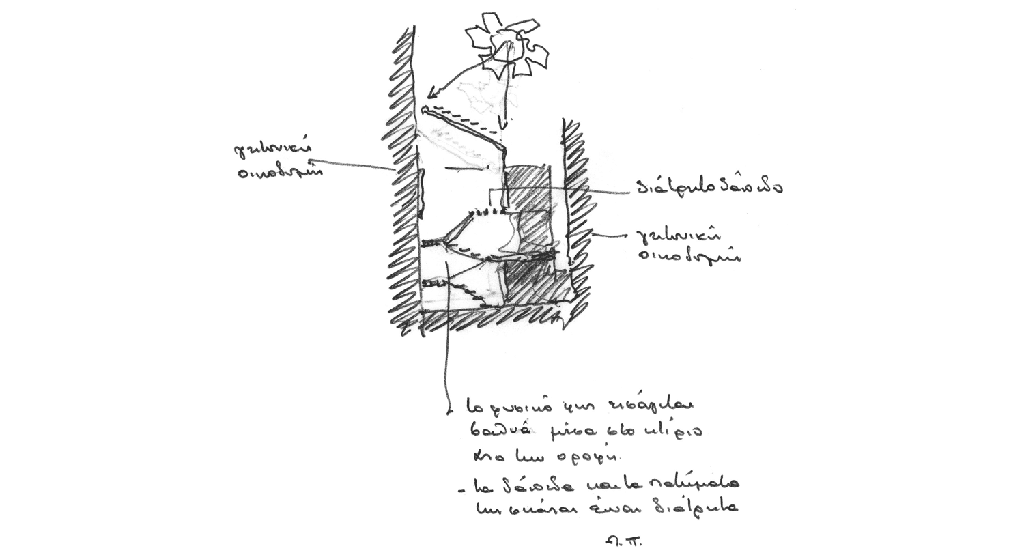 γειτονική
οικοδομή
διάτρητο δάπεδο
γειτονική
οικοδομή
- το φυσικό φως εισάγεται
βαθυά μέσα στο κτίριο
απο την οροφή.
- τα δάπεδα και τα πατήματα
της σκάλας είναι διάτρητα
Λ.Π.